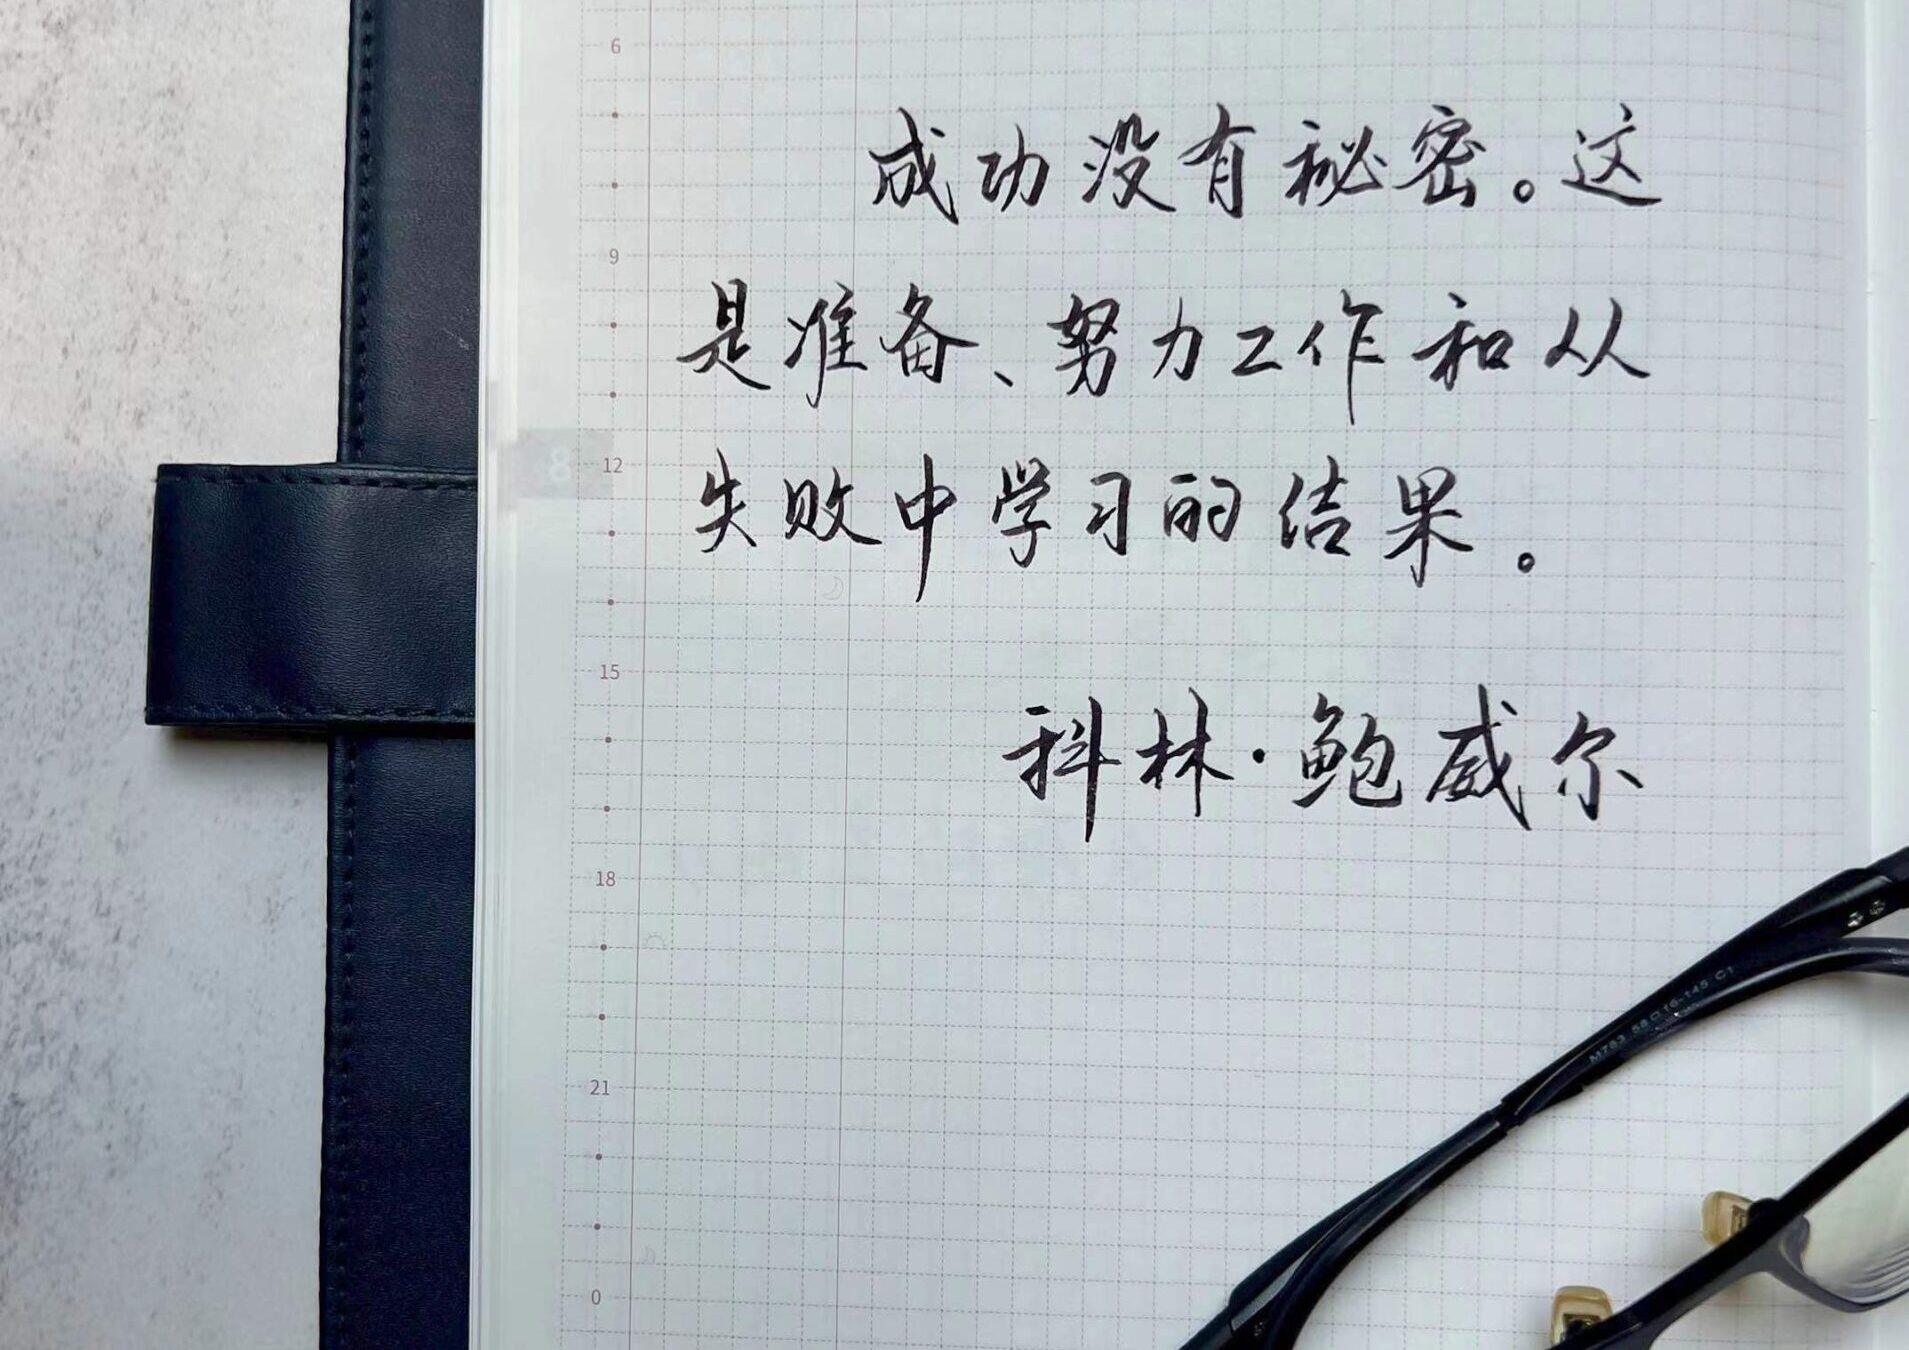 6
成功没有秘密。这
9
是准备、努力工作和从
8
12
失败中学习的结果。
15
科林·鲍威尔
18
M783 58□16-145 C1
21
0